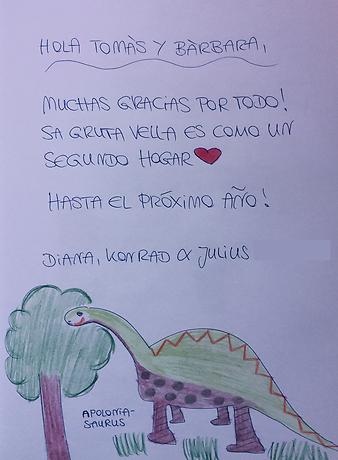 HOLA TOMÀS Y BÀRBARA,
MUCHAS GRACIAS POR TODO!
SA GRUTA VELLA ES COMO UN
SEGUNDO HOGAR
HASTA EL PRÓXIMO AÑO!
DIANA, KONRAD & JULIUS
APOLONIA-
SAURUS